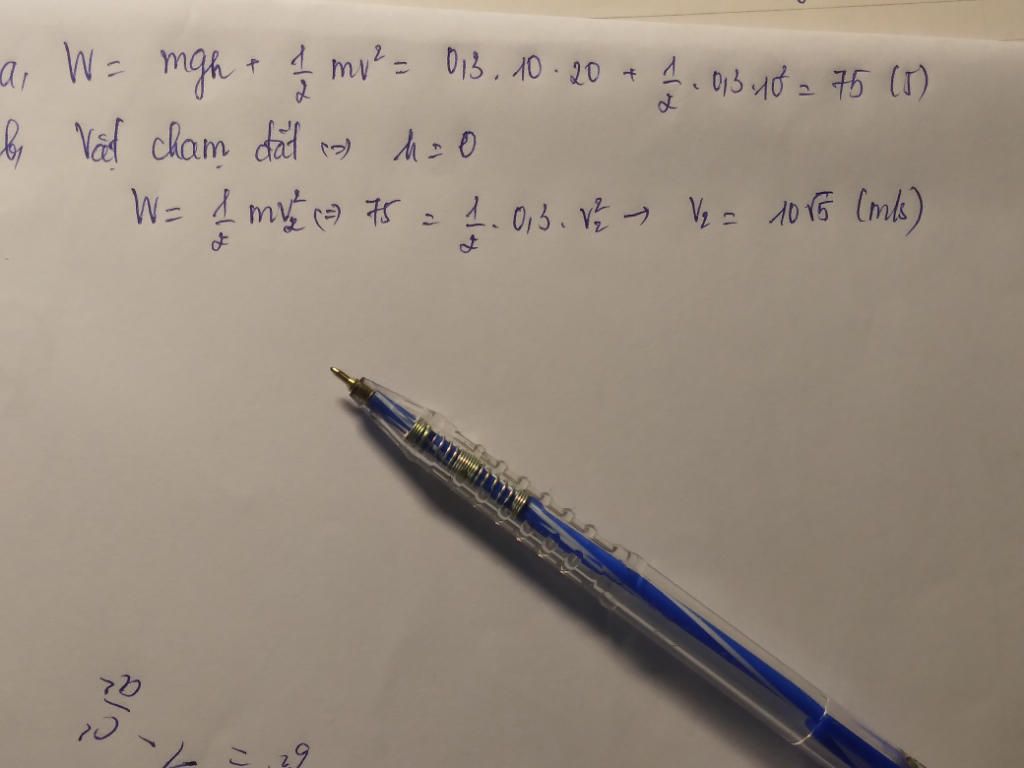 a, W = mgh + 1/2 mv² = 0,3 . 10 . 20 + 1/2 . 0,3 . 10² = 75 (J)
b, Vật chạm đất <=> h = 0
W = 1/2 mv₂² <=> 75 = 1/2 . 0,3 . v₂² → v₂ = 10√5 (m/s)
20
10
= 29